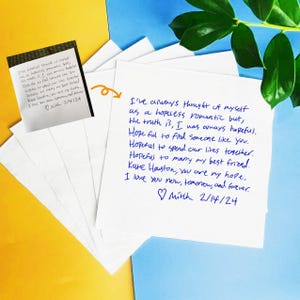 I've always thought of myself
as a hopeless romantic but,
the truth is, I was always hopeful.
Hopeful to find someone like you.
Hopeful to spend our lives together.
Hopeful to marry my best friend.
Houston, you are my hope.
I love you now, tomorrow, and forever.
♡ Mitch 2/14/24